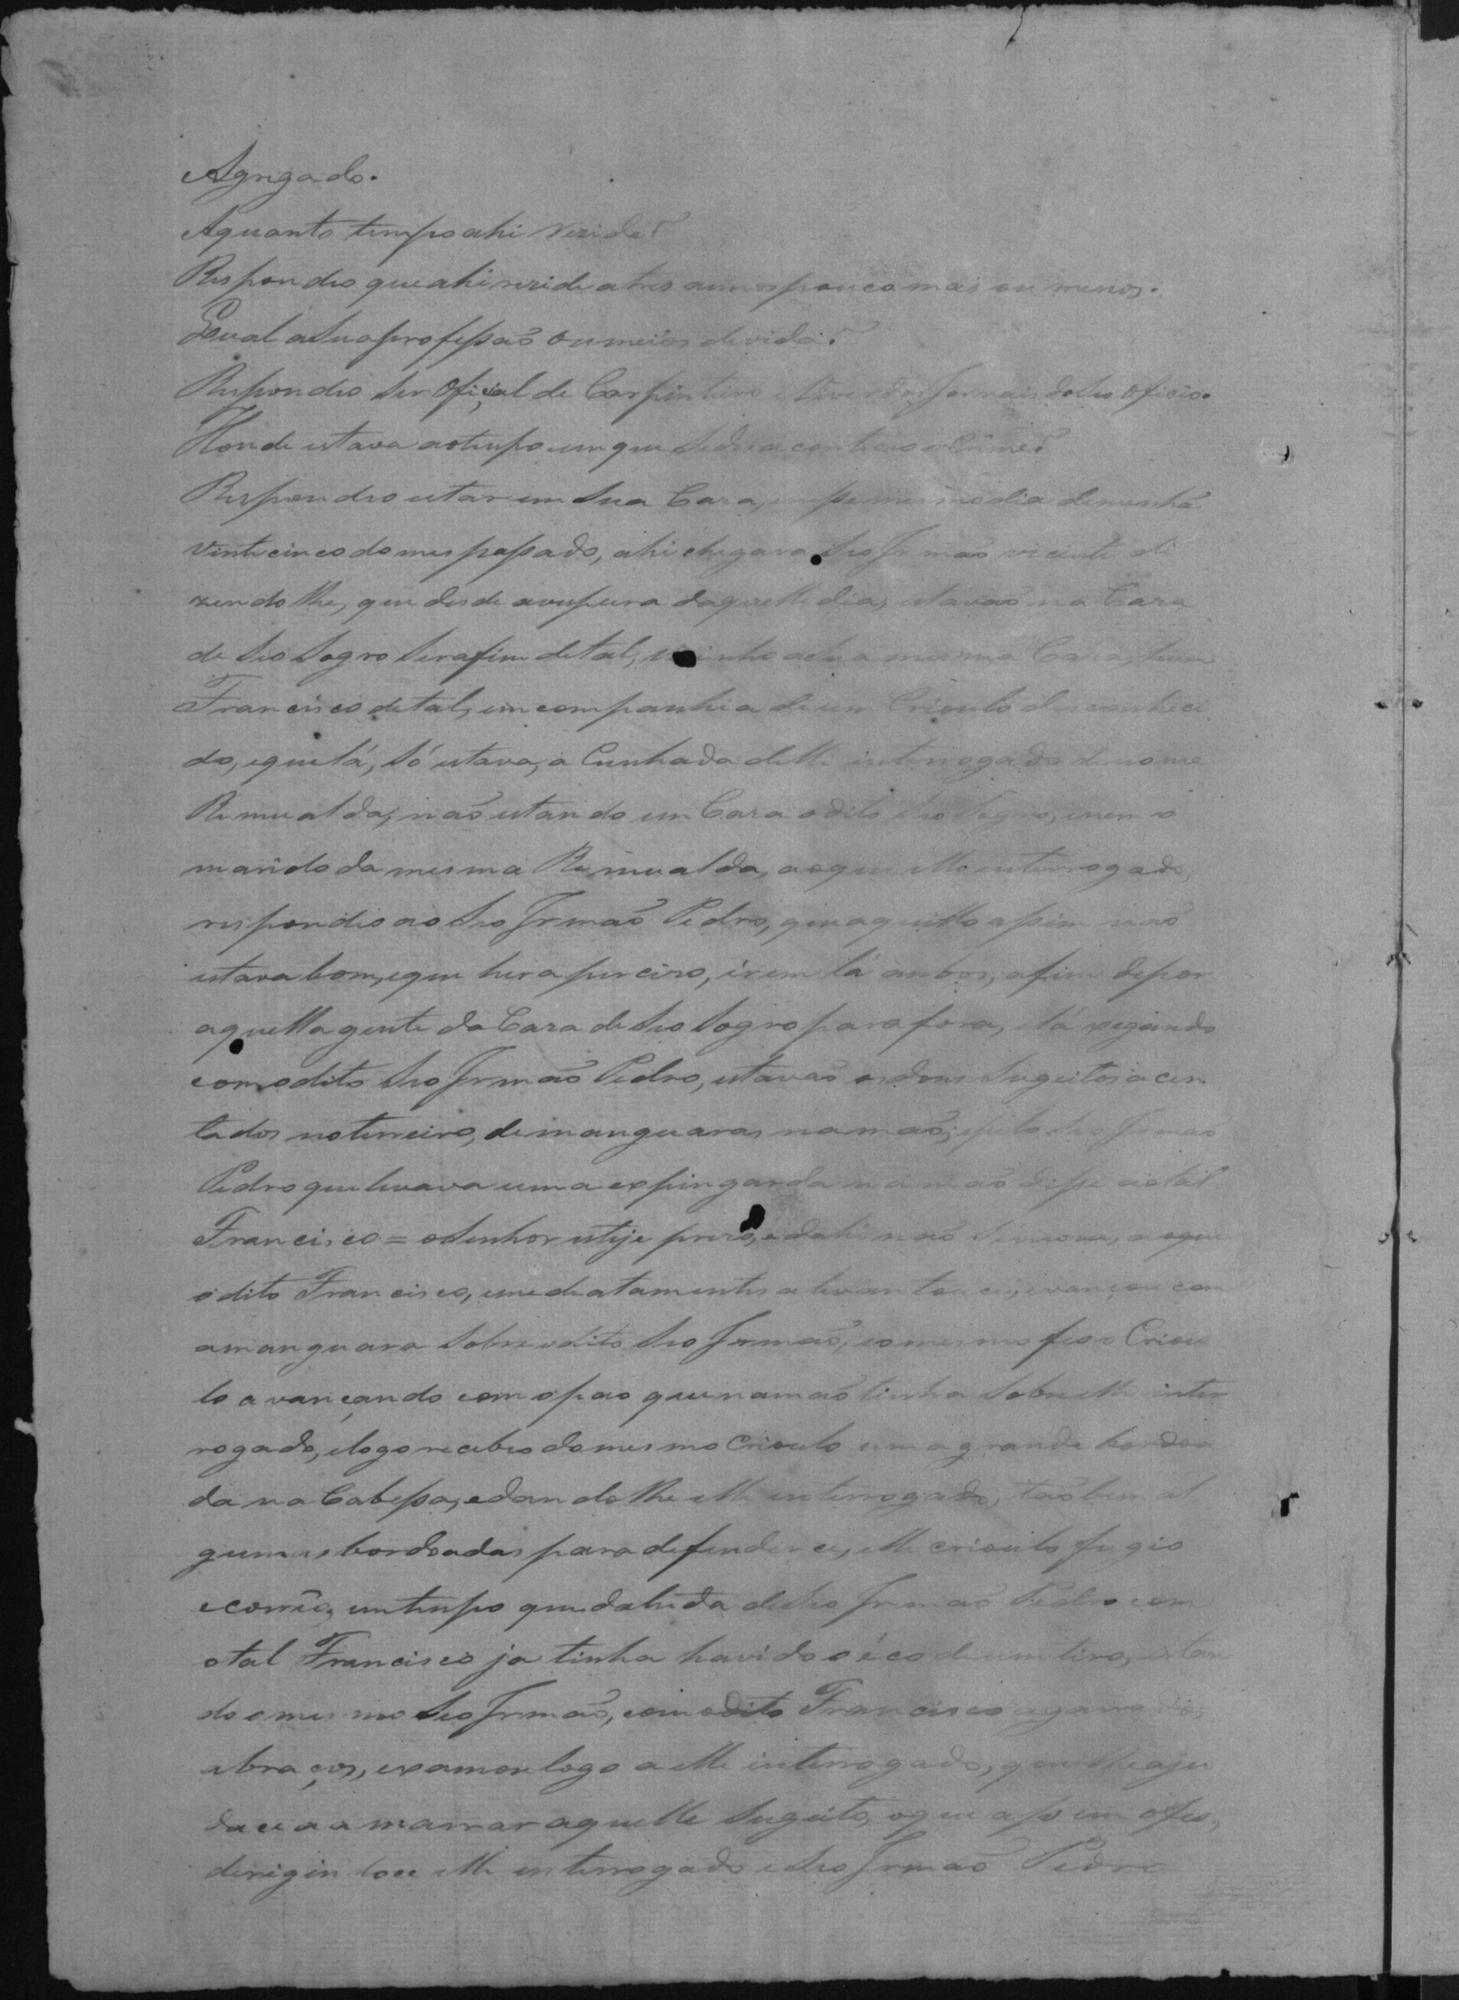 Agregado.
Aquanto tempo ahi rezide?
Respondeo que ahi rezide a tres annos pouco mais ou menos.
Qual a Sua profissão ou meios de vida?
Respondeo Ser Oficial de Carpinteiro e Viver dos Jornais do Seo Oficio.
Honde estava ao tempo em que Se dis acontecer o Crime?
Respondeo estar em Sua Caza, e nesse mesmo dia de menhã
Vinte cinco do mes passado, ahi chegara Seo Irmão di
zendo lhe, que desde avespera daquelle dia, estavão na Caza
de Seo Sogro Serafim de tal, vizinho a Sua mesma Caza hum
Francisco de tal, em companhia de um Crioulo desconheci
do, e que lá, Só estava, a Cunhada delle interrogado de nome
Remualda, não estando em Caza o dito Seo Sogro, e nem o
marido da mesma Remualda, ao que elle interrogado,
respondeo ao Seo Irmão Pedro, que aquillo assim não
estava bom, e que hera perciso, írem lá ambos, afim de por
aquella gente da Caza de Seo Sogro para fora, e lá xegando
com o dito Seo Irmão Pedro, estavão os dous Sugeitos acen
tados no terreiro, de manguaras na mão, e pelo Seo Irmão
Pedro que levava uma espingarda na mão disse ao tal
Francisco = o Senhor esteje prezo, e dahi não Se mova, ao que
o dito Francisco, emediatamentes alevantou ce, e vançou com
a manguara Sobre o dito Seo Irmão, e o mesmo fes o Criou
lo avançando com o pao que na mão tinha Sobre elle inter
rogado, e logo recebeo do mesmo Crioulo uma grande bordoa
da na Cabessa, e dando lhe elle interrogado, tãobem al
gumas bordoadas para defender ce, elle crioulo fugio
e correo, em tempo que da lida de Seo Irmão Pedro com
o tal Francisco ja tinha havido o éco de um tiro, estan
do o mesmo Seo Irmão, com o dito Francisco agarrados
abraços, e xamou logo a elle interrogado, que lhe aju
dace a amarrar aquelle Sugeito, o que assim o fes,
derigindoce elle interrogado e Seo Irmão Pedro